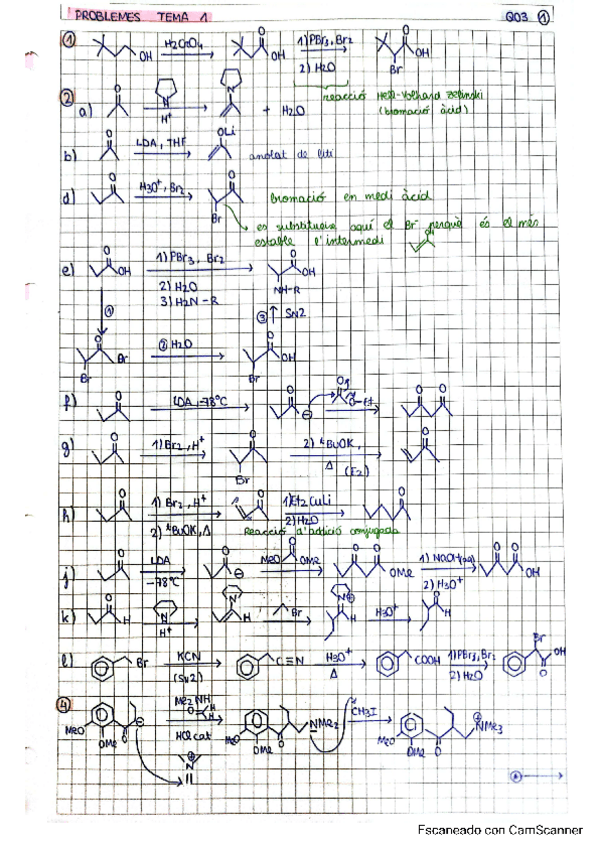 PROBLEMES TEMA 1 QO3 1
1 OH H2CrO4 O OH 1) PBr3, Br2 2) H2O O OH Br
reacció Hell-Volhard Zelinski
(bromació àcid)
2 a) O N H+ N + H2O
b) O LDA, THF OLi enolat de liti
d) O H3O+, Br2 O Br bromació en medi àcid
es substitueix aquí el Br- perquè és el més
estable l'intermedi
e) O OH 1) PBr3, Br2 O OH NH-R
2) H2O
3) H2N-R
1 3 SN2
O Br Br 2 H2O O OH Br
f) O LDA, -78ºC O ⊖ O O-Et O O
g) O 1) Br2, H+ O Br 2) tBuOK, Δ (E2) O
h) O 1) Br2, H+ O 1) Et2CuLi O
2) tBuOK, Δ 2) H2O
Reacció d'addició conjugada
j) O LDA -78ºC O ⊖ MeO O OMe O O OMe 1) NaOH (aq) 2) H3O+ O O OH
k) O H N H+ N H Br N⊕ H H3O+ O H
l) Br KCN (SN2) C≡N H3O+ Δ COOH 1) PBr3, Br2 2) H2O Br OH O
4 MeO OMe O ⊖ Me2NH O H H HCl cat MeO OMe O NMe2 CH3I MeO OMe O ⊕NMe3
N⊕
Escaneado con CamScanner